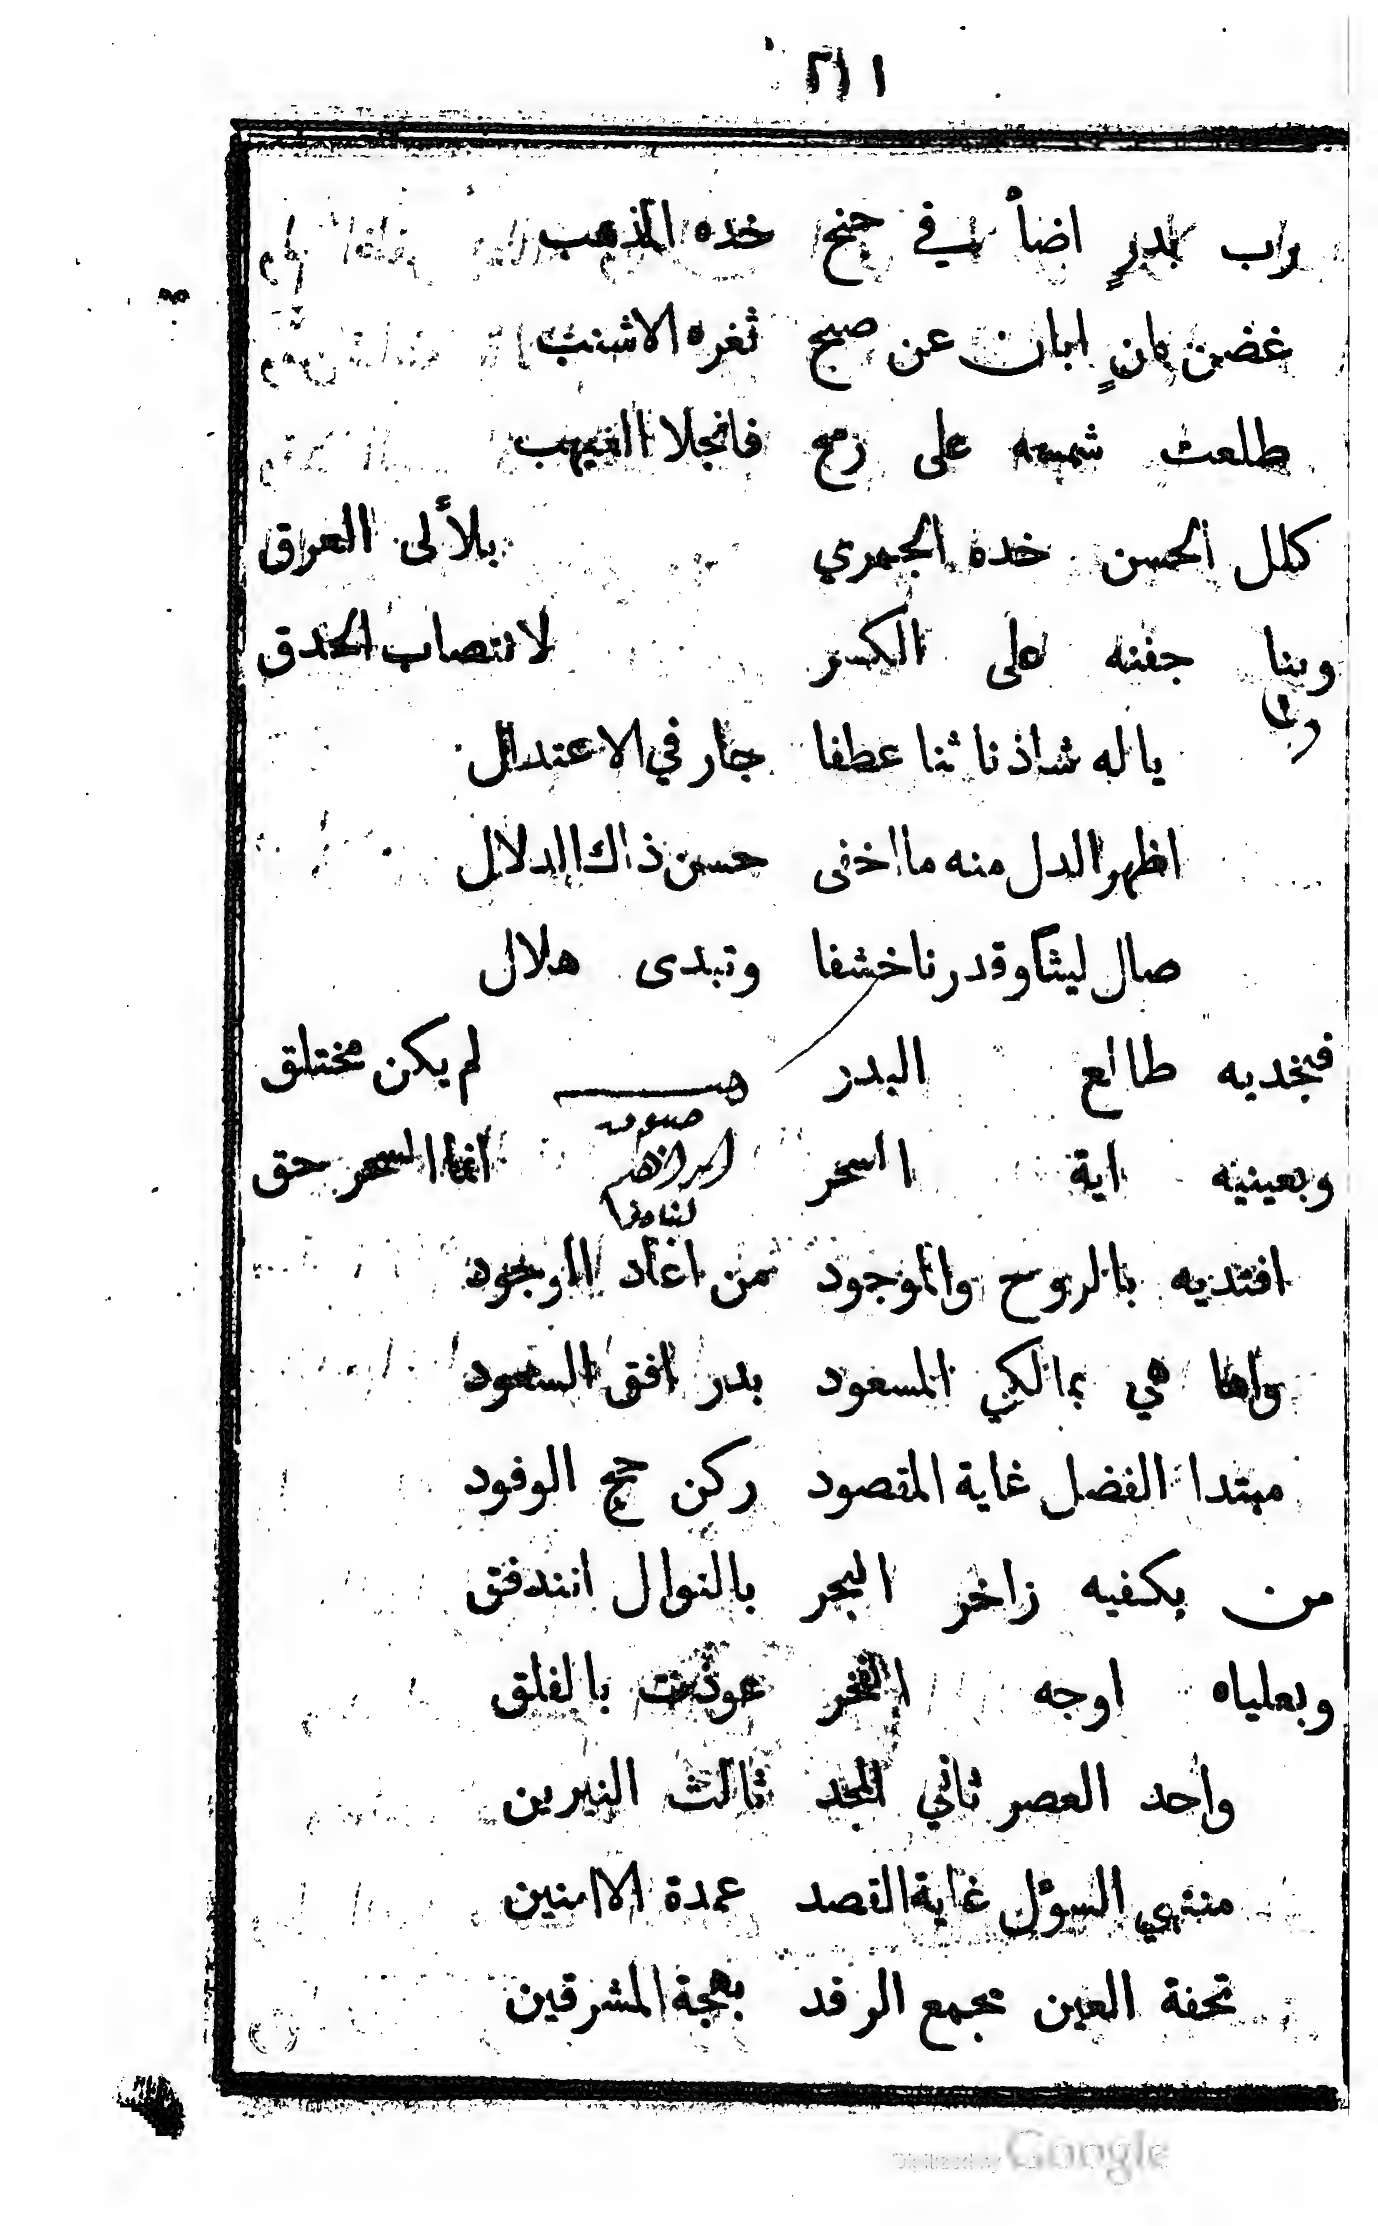 ٢١١
راب بدرٍ اضأ في جنح خده المذهب
غضن بانٍ ابان عن صبح ثغره الاشنب
طلعت شمسه على رمح فانجلا الغيهب
كلل الحسن خده الجمري بلألى العراق
وبنا جفنه على الكسر لانتصاب الحدق
ياله شاذنا ثنا عطفا جار في الاعتدال
اظهر الدل منه ما اخفى حسن ذاك الدلال
صال ليثا وقد رنا خشفا وتبدى هلال
فبخديه طالع البدر لم يكن مختلق
وبعينيه اية السحر انما السحر حق
افتديه بالروح والموجود من اعاد الوجود
واها هي بمالكي المسعود بدر افق السعود
مبتدا الفضل غاية المقصود ركن حج الوفود
من بكفيه زاخر البحر بالنوال اندفق
وبعلياه اوجه الفخر عوذت بالفلق
واحد العصر ثاني المجد ثالث النيرين
منتهي السؤل غاية القصد عمدة الامنين
تحفة العين مجمع الرفد بهجة المشرقين
Digitized by Google